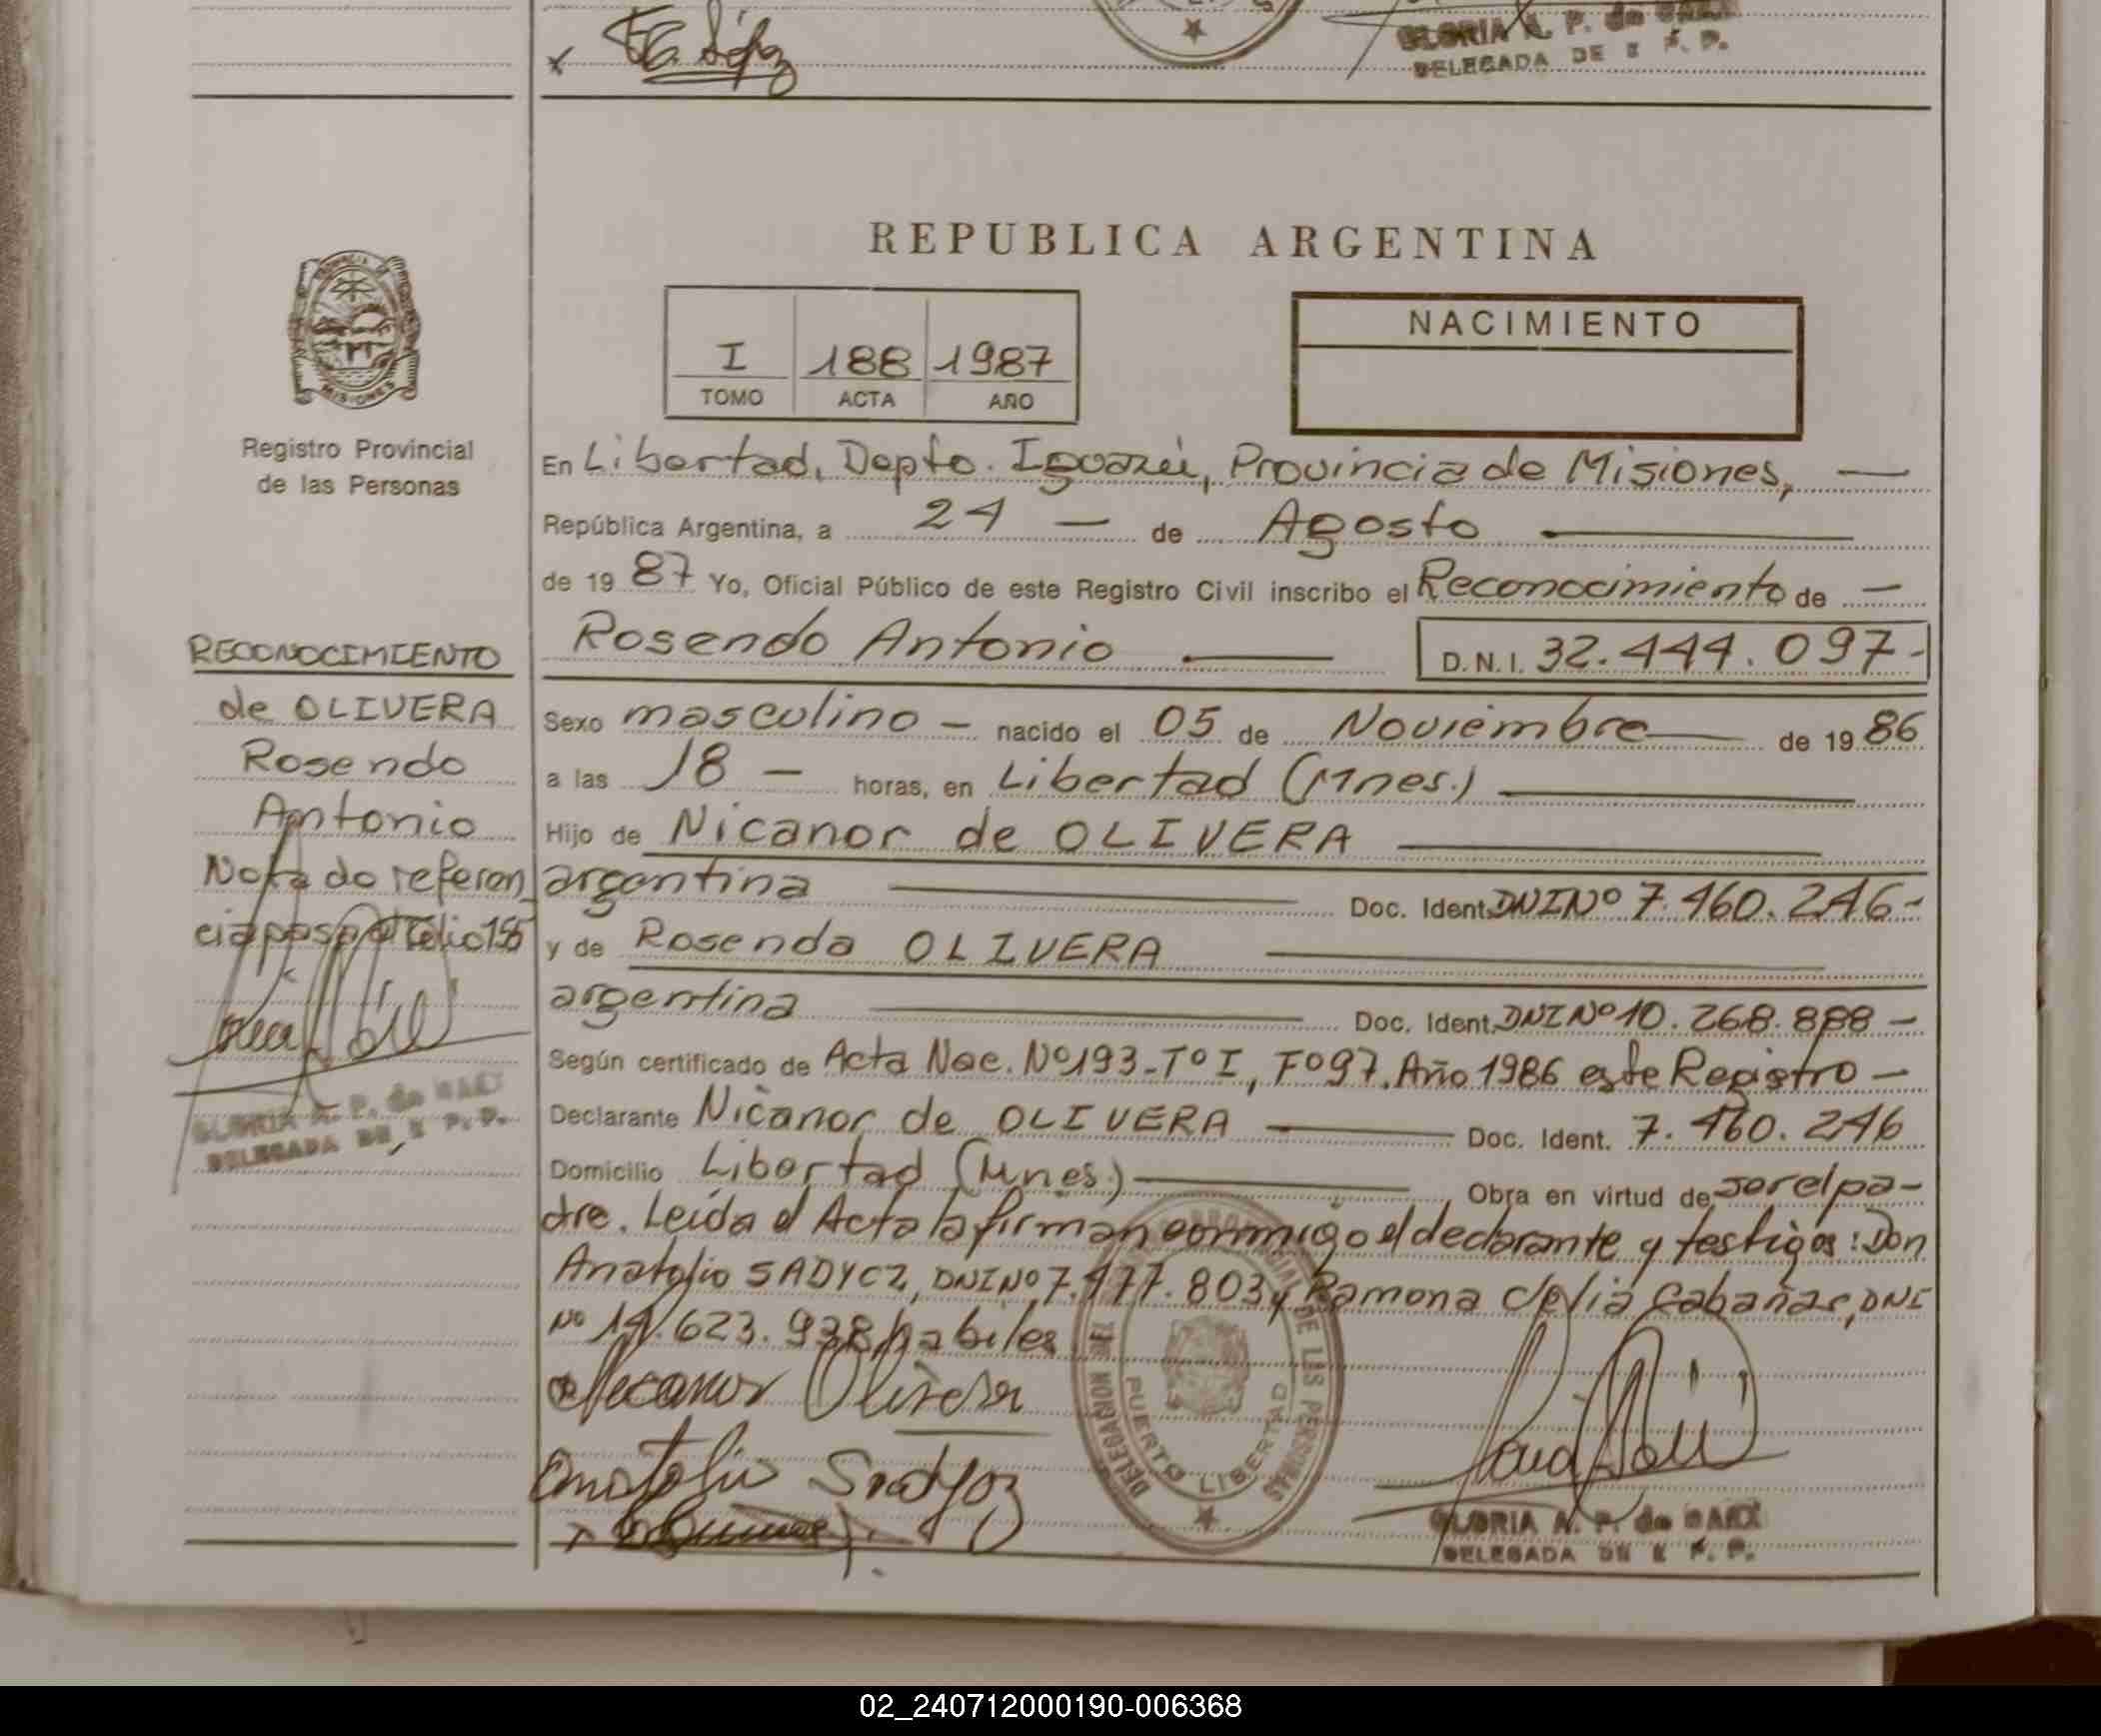 GLORIA A. P. de
DELEGADA DE E P. P.
REPUBLICA ARGENTINA
PROVINCIA DE
MISIONES
Registro Provincial
de las Personas
I 188 1987
TOMO ACTA AÑO
NACIMIENTO
En Libertad, Depto. Iguazú, Provincia de Misiones, —
República Argentina, a 24 — de Agosto —
de 19 87 Yo, Oficial Público de este Registro Civil inscribo el Reconocimiento de —
Rosendo Antonio — D.N.I. 32.444.097-
RECONOCIMIENTO
de OLIVERA
Rosendo
Antonio
Nota de referen
cia pasa a Folio
GLORIA A. P. de
DELEGADA DE E P. P.
Sexo masculino — nacido el 05 de Noviembre — de 19 86
a las 18 — horas, en Libertad (Mnes.) —
Hijo de Nicanor de OLIVERA —
argentina — Doc. Ident. DNI Nº 7.460.246-
y de Rosenda OLIVERA —
argentina — Doc. Ident. DNI Nº 10.268.888 —
Según certificado de Acta Nac. Nº 193-Tº I, Fº 97. Año 1986 este Registro —
Declarante Nicanor de OLIVERA — Doc. Ident. 7.460.246
Domicilio Libertad (Mnes.) — Obra en virtud de ser el pa-
dre. Leída el Acta la firman conmigo el declarante y testigos: Don
Anatolio SADYCZ, DNI Nº 7.477.803 y Ramona Celia Cabañas, DNI
Nº 14.623.938 habiles
Nicanor Olivera
Anatolio Sadycz
DELEGACION DE LAS PERSONAS
PUERTO LIBERTAD
GLORIA A. P. de
DELEGADA DE E P. P.
02_240712000190-006368